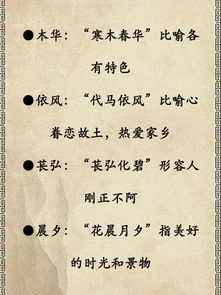 ●木华：“寒木春华”比喻各
有特色
●依风：“代马依风”比喻心
眷恋故土，热爱家乡
●苌弘：“苌弘化碧”形容人
刚正不阿
●晨夕：“花晨月夕”指美好
的时光和景物